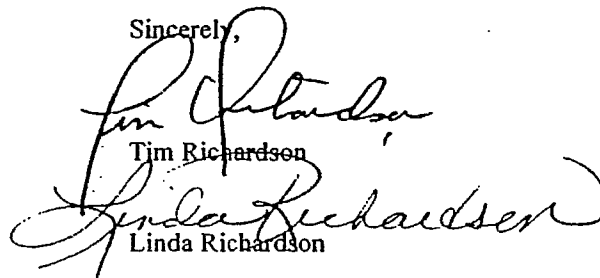 Sincerely,
Tim Richardson
Tim Richardson
Linda Richardson
Linda Richardson